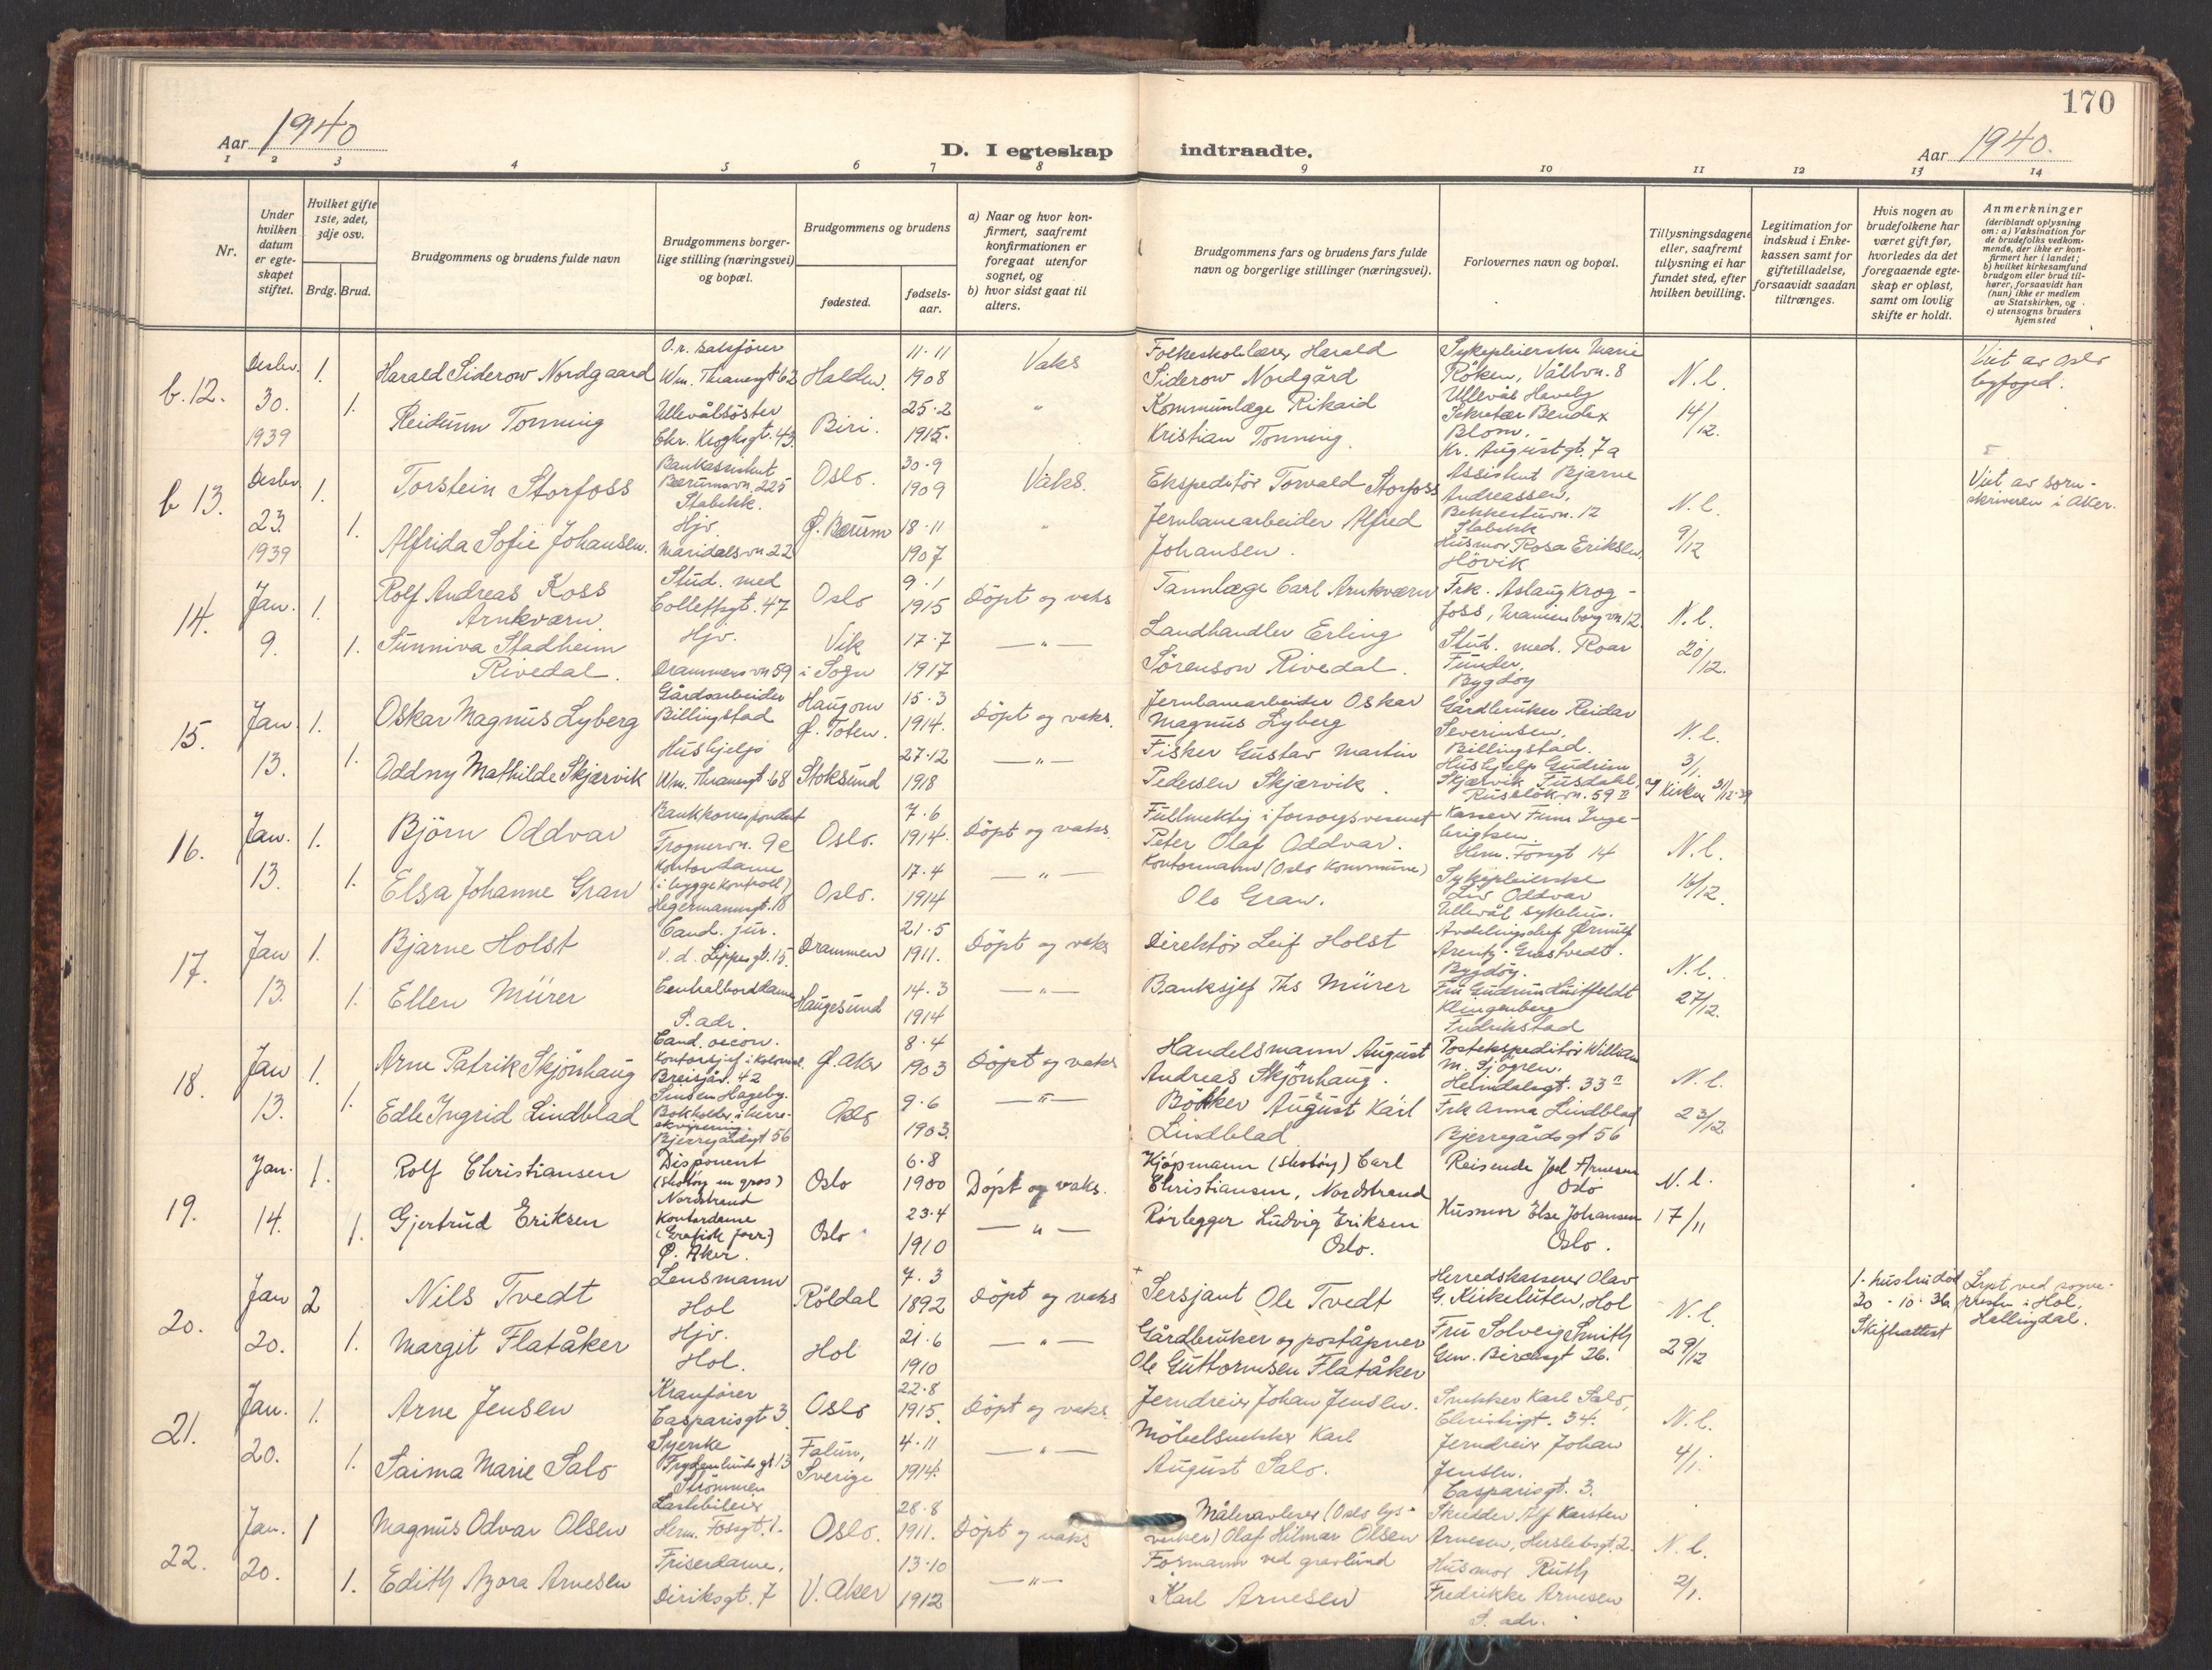 170
Aar 1940
D. I egteskap indtraadte.
Aar 1940.
1 2 3 4 5 6 7 8 9 10 11 12 13 14
Nr.
Under hvilken datum er egteskapet stiftet.
Hvilket gifte 1ste, 2det, 3dje osv.
Brdg. Brud.
Brudgommens og brudens fulde navn
Brudgommens borgerlige stilling (næringsvei) og bopæl.
Brudgommens og brudens
fødested.
fødselsaar.
a) Naar og hvor konfirmert, saafremt konfirmationen er foregaat utenfor sognet, og
b) hvor sidst gaat til alters.
Brudgommens fars og brudens fars fulde navn og borgerlige stillinger (næringsvei).
Forlovernes navn og bopæl.
Tillysningsdagene eller, saafremt tillysning ei har fundet sted, efter hvilken bevilling.
Legitimation for indskud i Enkekassen samt for giftetilladelse, forsaavidt saadan tiltrænges.
Hvis nogen av brudefolkene har været gift før, hvorledes da det foregaaende egteskap er opløst, samt om lovlig skifte er holdt.
Anmerkninger
(deriblandt oplysning om: a) Vaksination for de brudefolks vedkommende, der ikke er konfirmert her i landet;
b) hvilket kirkesamfund brudgom eller brud tilhører, forsaavidt han (hun) ikke er medlem av Statskirken, og
c) utensogns bruders hjemsted
b. 12.
Desbr. 30. 1939
1.
Harald Siderow Nordgaard
O.r. saksfører
Wm. Thranesgt 62
Halden.
11.11 1908
Vaks
Folkeskolelærer Harald
Siderow Nordgård
Sykepleierske Marie
Røken, Vållvn. 8
Ullevål Haveby
N.l.
14/12.
Viet av Oslo
byfoged.
1.
Reidunn Tonning
Ullevålsöster
Chr. Kroghsgt. 43.
Biri.
25.2 1915.
"
Kommunlæge Rikard
Kristian Tonning.
Sekretær Bendix
Blom,
Kr. Augustgt. 7a
b 13.
Desbr. 23. 1939
1.
Torstein Storfoss
Bankassistent
Bærumsvn. 225
Stabekk.
Oslo.
30.9 1909
Vaks.
Ekspeditör Torvald Storfoss
Assistent Bjarne
Andreassen,
Bekkestuvn. 12
Stabekk
N.l.
9/12
Viet av soren-
skriveren i Aker.
1.
Alfrida Sofie Johansen.
Hjv.
Maridalsvn 22
Ø. Bærum
18.11 1907
"
Jernbanearbeider Alfred
Johansen.
Husmor Rosa Eriksen,
Hövik
14.
Jan. 9.
1.
Rolf Andreas Koss
Arnkværn.
Stud. med
Collettsgt. 47
Oslo
9.1 1915
Döpt og vaks
Tannlæge Carl Arnkværn
Frk. Aslaug Krog-
foss, Uranienborgvn 12.
N.l.
20/12.
1.
Sunniva Stadheim
Rivedal.
Hjv.
Drammensvn 59
Vik
i Sogn
17.7 1917
— " —
Landhandler Erling
Sörenson Rivedal.
Stud. med. Roar
Funder,
Bygdöy
15.
Jan. 13.
1.
Oskar Magnus Lyberg
Gårdsarbeider
Billingstad
Haugom
Ø. Toten.
15.3 1914.
Döpt og vaks.
Jernbanearbeider Oskar
Magnus Lyberg
Gårdbruker Reidar
Severinsen,
Billingstad.
N.l.
3/1.
1.
Oddny Mathilde Skjærvik
Hushjelp
Wm. Thranesgt 68
Stoksund
27.12 1918
— " —
Fisker Gustav Martin
Pedersen Skjærvik.
Hushjelp Gudrun
Skjærvik Fusdahl,
Ruselökvn. 59 II
I kirken 31/12-39
16.
Jan. 13.
1.
Björn Oddvar
Bankkorrespondent
Frognervn. 9c
Oslo.
7.6 1914.
Döpt og vaks
Fullmektig i forsorgsvesenet
Peter Olaf Oddvar.
Kasserer Finn Inge-
brigtsen
Herm. Fossgt 14
N.l.
16/12.
1.
Elsa Johanne Gran
Kontordame
(i byggekontroll)
Hegermannsgt. 18
Oslo.
17.4 1914
— " —
Kontormann (Oslo Kommune)
Ole Gran.
Sykepleierske
Liv Oddvar
Ullevål sykehus.
17.
Jan 13.
1.
Bjarne Holst
Cand. jur.
v. d. Lippesgt. 15.
Drammen
21.5 1911.
Döpt og vaks
Direktör Leif Holst
Avdelingschef
Bygdöy.
N.l.
27/12.
1.
Ellen Mürer
Centralborddame
S. adr.
Haugesund
14.3 1914
— " —
Banksjef Ths Mürer
Fru Gudrun Huitfeldt
Klingenberg
Fredrikstad
18.
Jan 13.
1.
Arne Patrik Skjönhaug
Cand. oecon.
Kontorsjef i kolonial.
Breisjåv. 42
Ø. Aker
8.4 1903
Döpt og vaks
Handelsmann August
Andreas Skjönhaug.
Postekspeditör William
M. Sjögren,
Heimdalsgt. 33
N.l.
23/12
1.
Edle Ingrid Lindblad
Sinsen Hageby.
Bokholder i herre-
ekvipering.
Bjerregårdsgt 56
Oslo
9.6 1903.
— " —
Bökker August Karl
Lindblad
Frk Anna Lindblad
Bjerregårdsgt 56
19.
Jan. 14.
1.
Rolf Christiansen
Disponent
(Skotöy en gros)
Nordstrand
Oslo
6.8 1900
Döpt og vaks.
Kjöpmann (skotöy) Carl
Christiansen, Nordstrand
Reisende Joel Arnesen
Oslo
N.l.
17/11
1.
Gjertrud Eriksen
Kontordame
(Grafisk forr.)
Ø. Aker.
Oslo
23.4 1910
— " —
Rörlegger Ludvig Eriksen
Oslo.
Husmor Else Johansen
Oslo.
20.
Jan 20.
2
Nils Tvedt
Lensmann
Hol
Röldal
7.3 1892
Döpt og vaks
Sersjant Ole Tvedt
Herredskasserer Olav
G. Kirkeluten, Hol
N.l.
29/12
1. hustru död
20-10-36.
Skifteattest
Lyst ved sogne-
presten i Hol,
Hallingdal.
1.
Margit Flatåker
Hjv.
Hol.
Hol
21.6 1910
— " —
Gårdbruker og poståpner
Ole Guttormsen Flatåker
Fru Solveig Smith
Gen. Birchsgt 26.
21.
Jan. 20.
1.
Arne Jensen
Kranförer
Casparisgt 3.
Oslo
22.8 1915.
Döpt og vaks
Jerndreier Johan Jensen.
Snekker Karl Salo,
Christiesgt. 34.
N.l.
4/1.
1.
Saima Marie Salo
Syerske
Frydenlundsgt 13
Strömmen
Falun,
Sverige
4.11 1914.
— " —
Möbelsnekker Karl
August Salo.
Jerndreier Johan
Jensen.
Casparisgt. 3.
22.
Jan. 20.
1
Magnus Odvar Olsen
Lastebileier
Herm. Fossgt. 1.
Oslo.
28.8 1911.
Döpt og vaks
Måleravleser (Oslo lys-
verker) Olaf Hilmar Olsen
Skredder Alf Karsten
Arnesen, Herslebsgt. 2.
N.l.
2/1.
1.
Edith Azora Arnesen
Friserdame,
Diriksgt. 7
V. Aker
13.10 1912
— " —
Formann ved gravlund
Karl Arnesen
Husmor Ruth
Fredrikke Arnesen
S. adr.